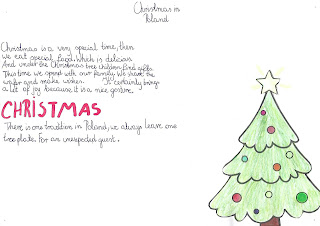 Christmas in
Poland
Christmas is a very special time, then
we eat special food. Which is delicious
And under the Christmas tree children find gifts.
This time we spend with our family. We share the
wafer and make wishes. It certainly bring
a lot of joy because it is a nice gesture.
CHRISTMAS
There is one tradition in Poland, we always leave one
free plate. For an unexpected guest.